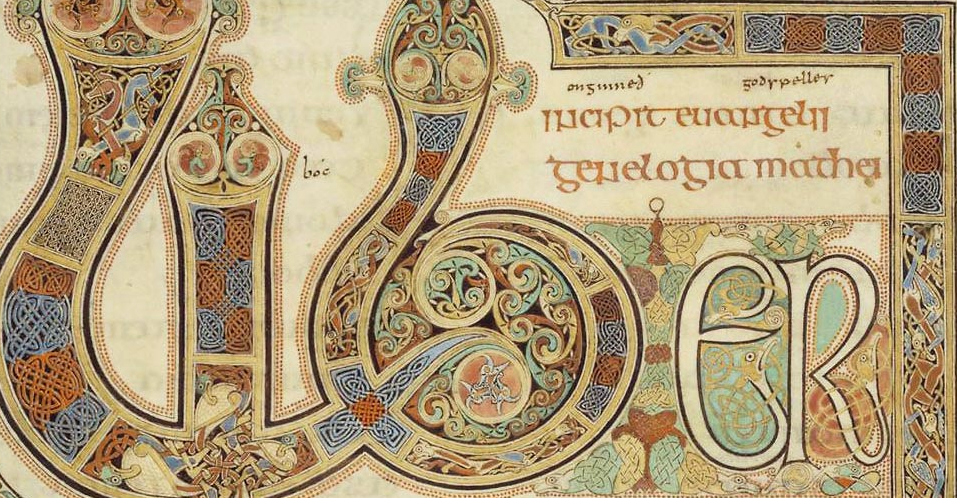 onginneð godspelles
incipit euangelii
genelogia mathei
bóc
LIBER